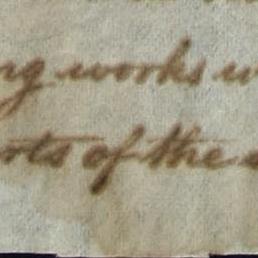 ng works w
rts of the